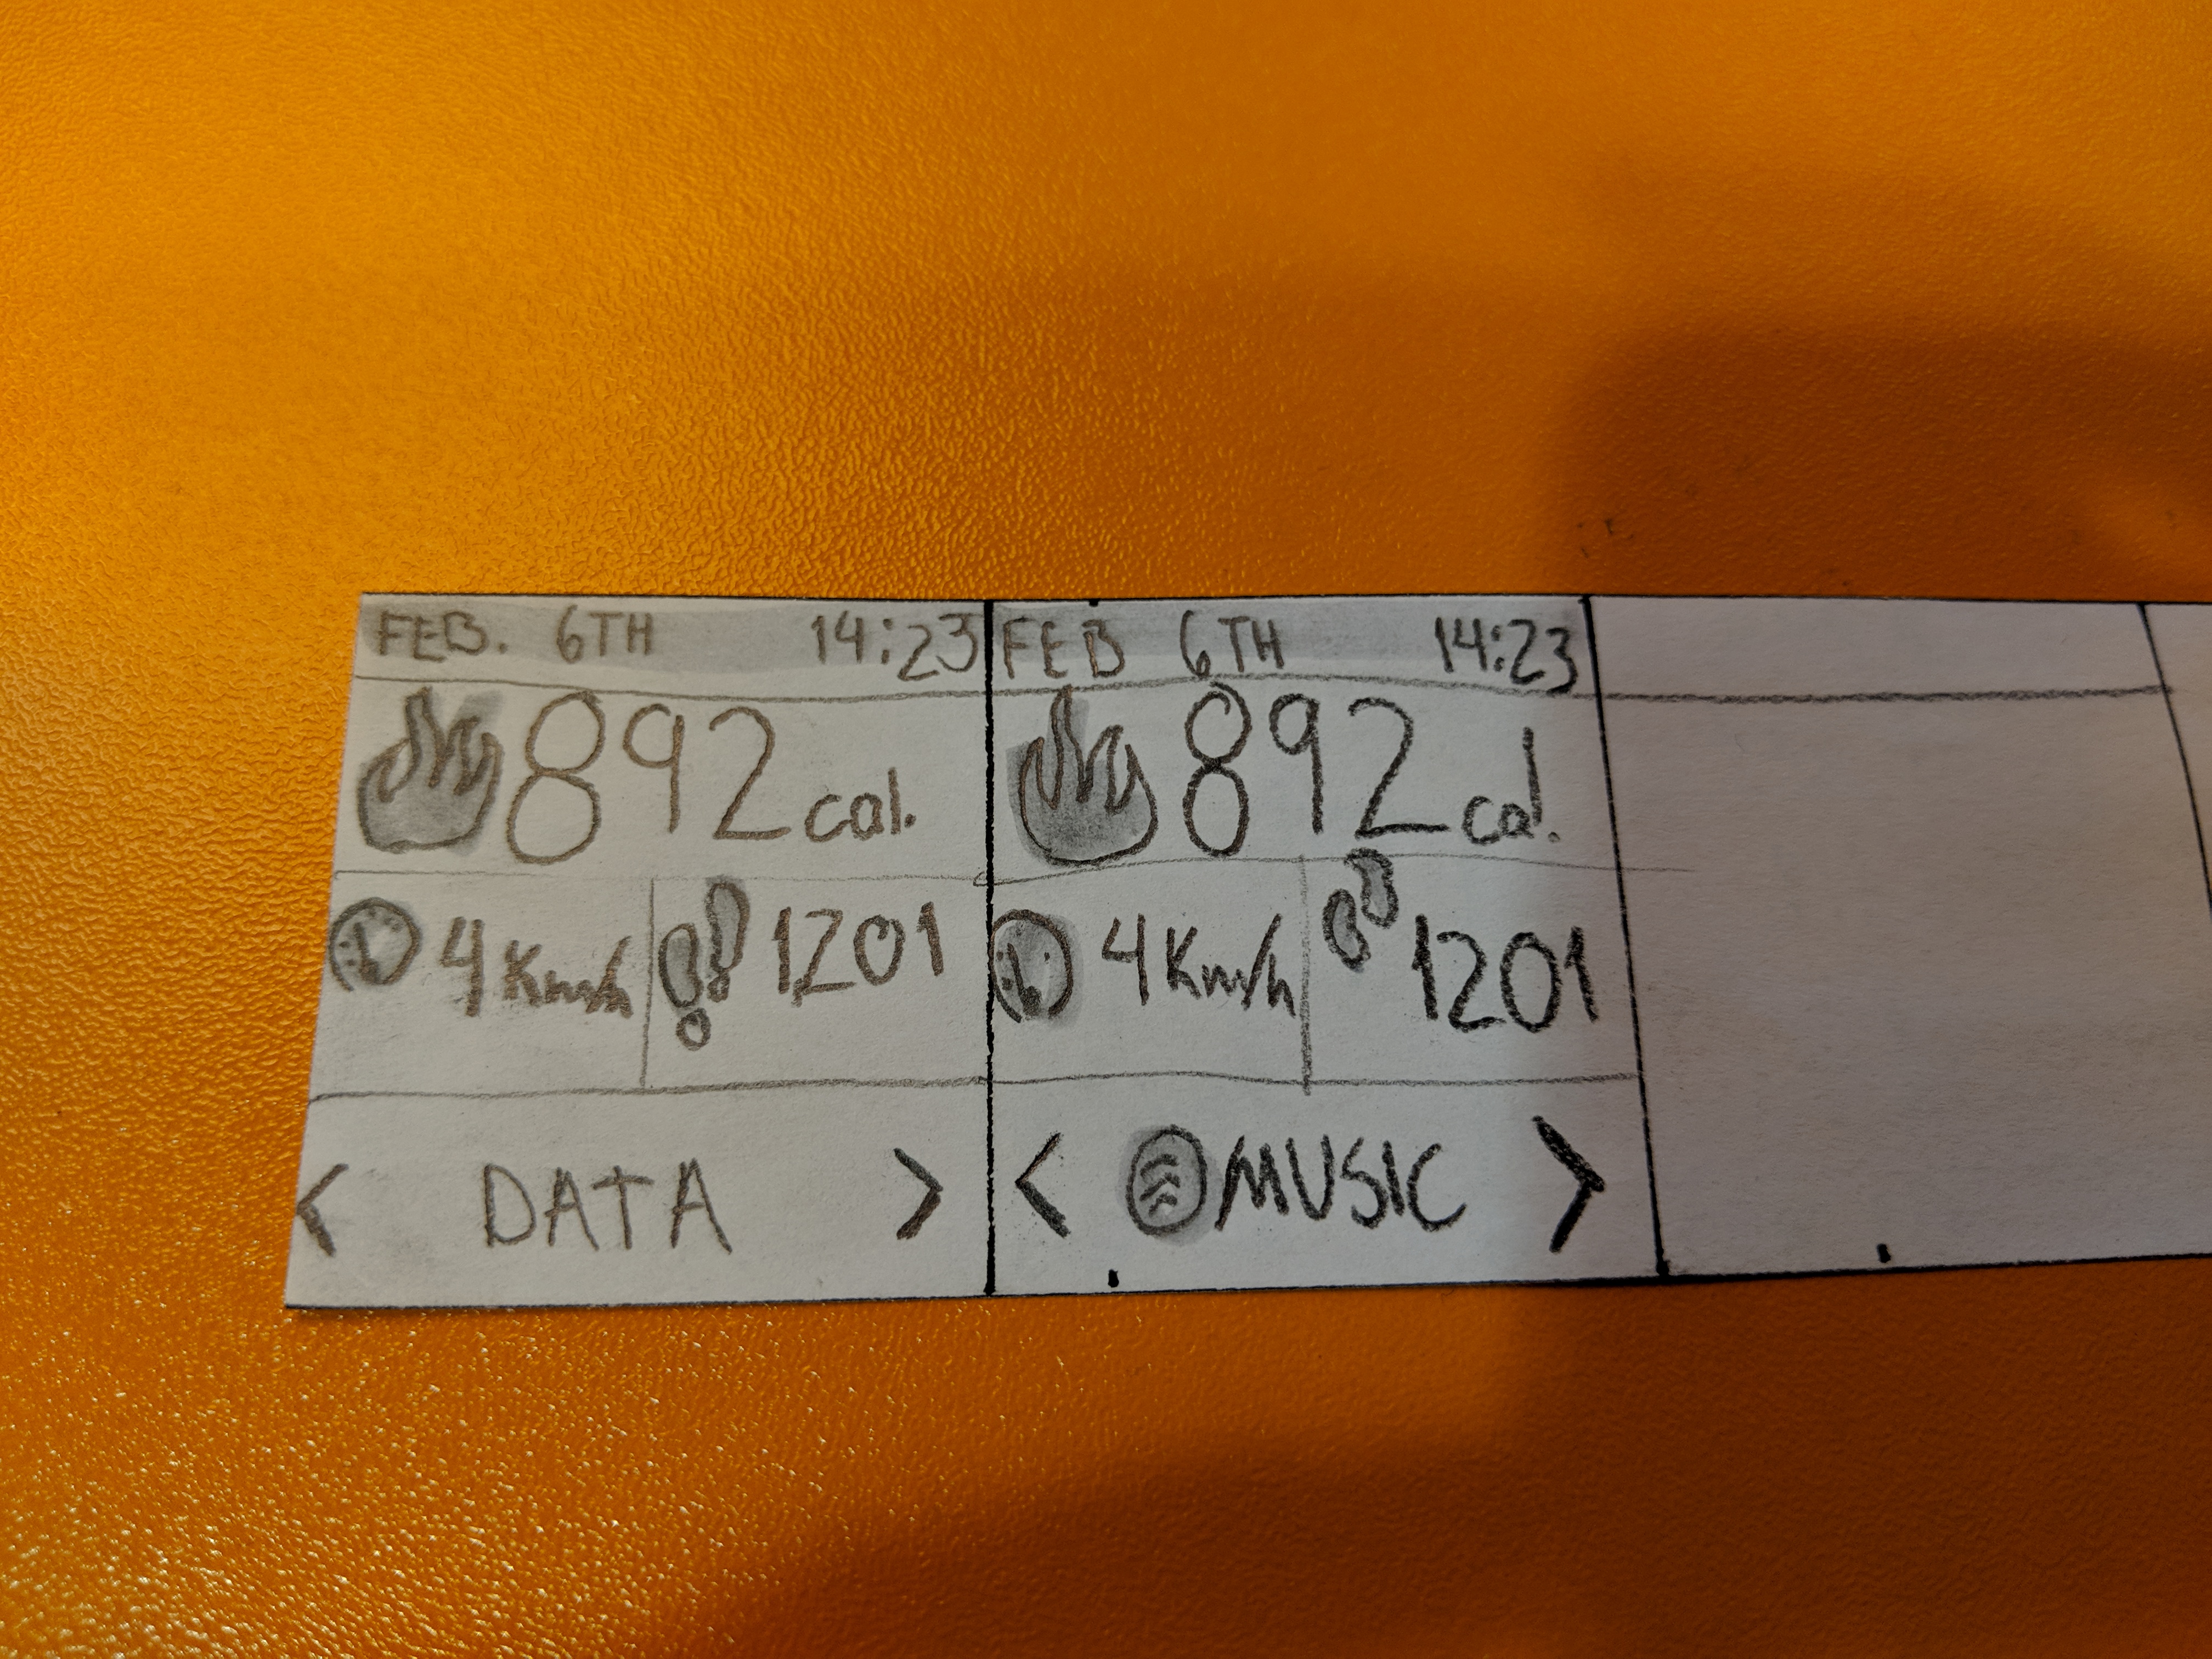 FEB. 6TH 14:23
892 cal.
4 Km/h 1201
< DATA >
FEB 6TH 14:23
892 cal.
4 Km/h 1201
< MUSIC >